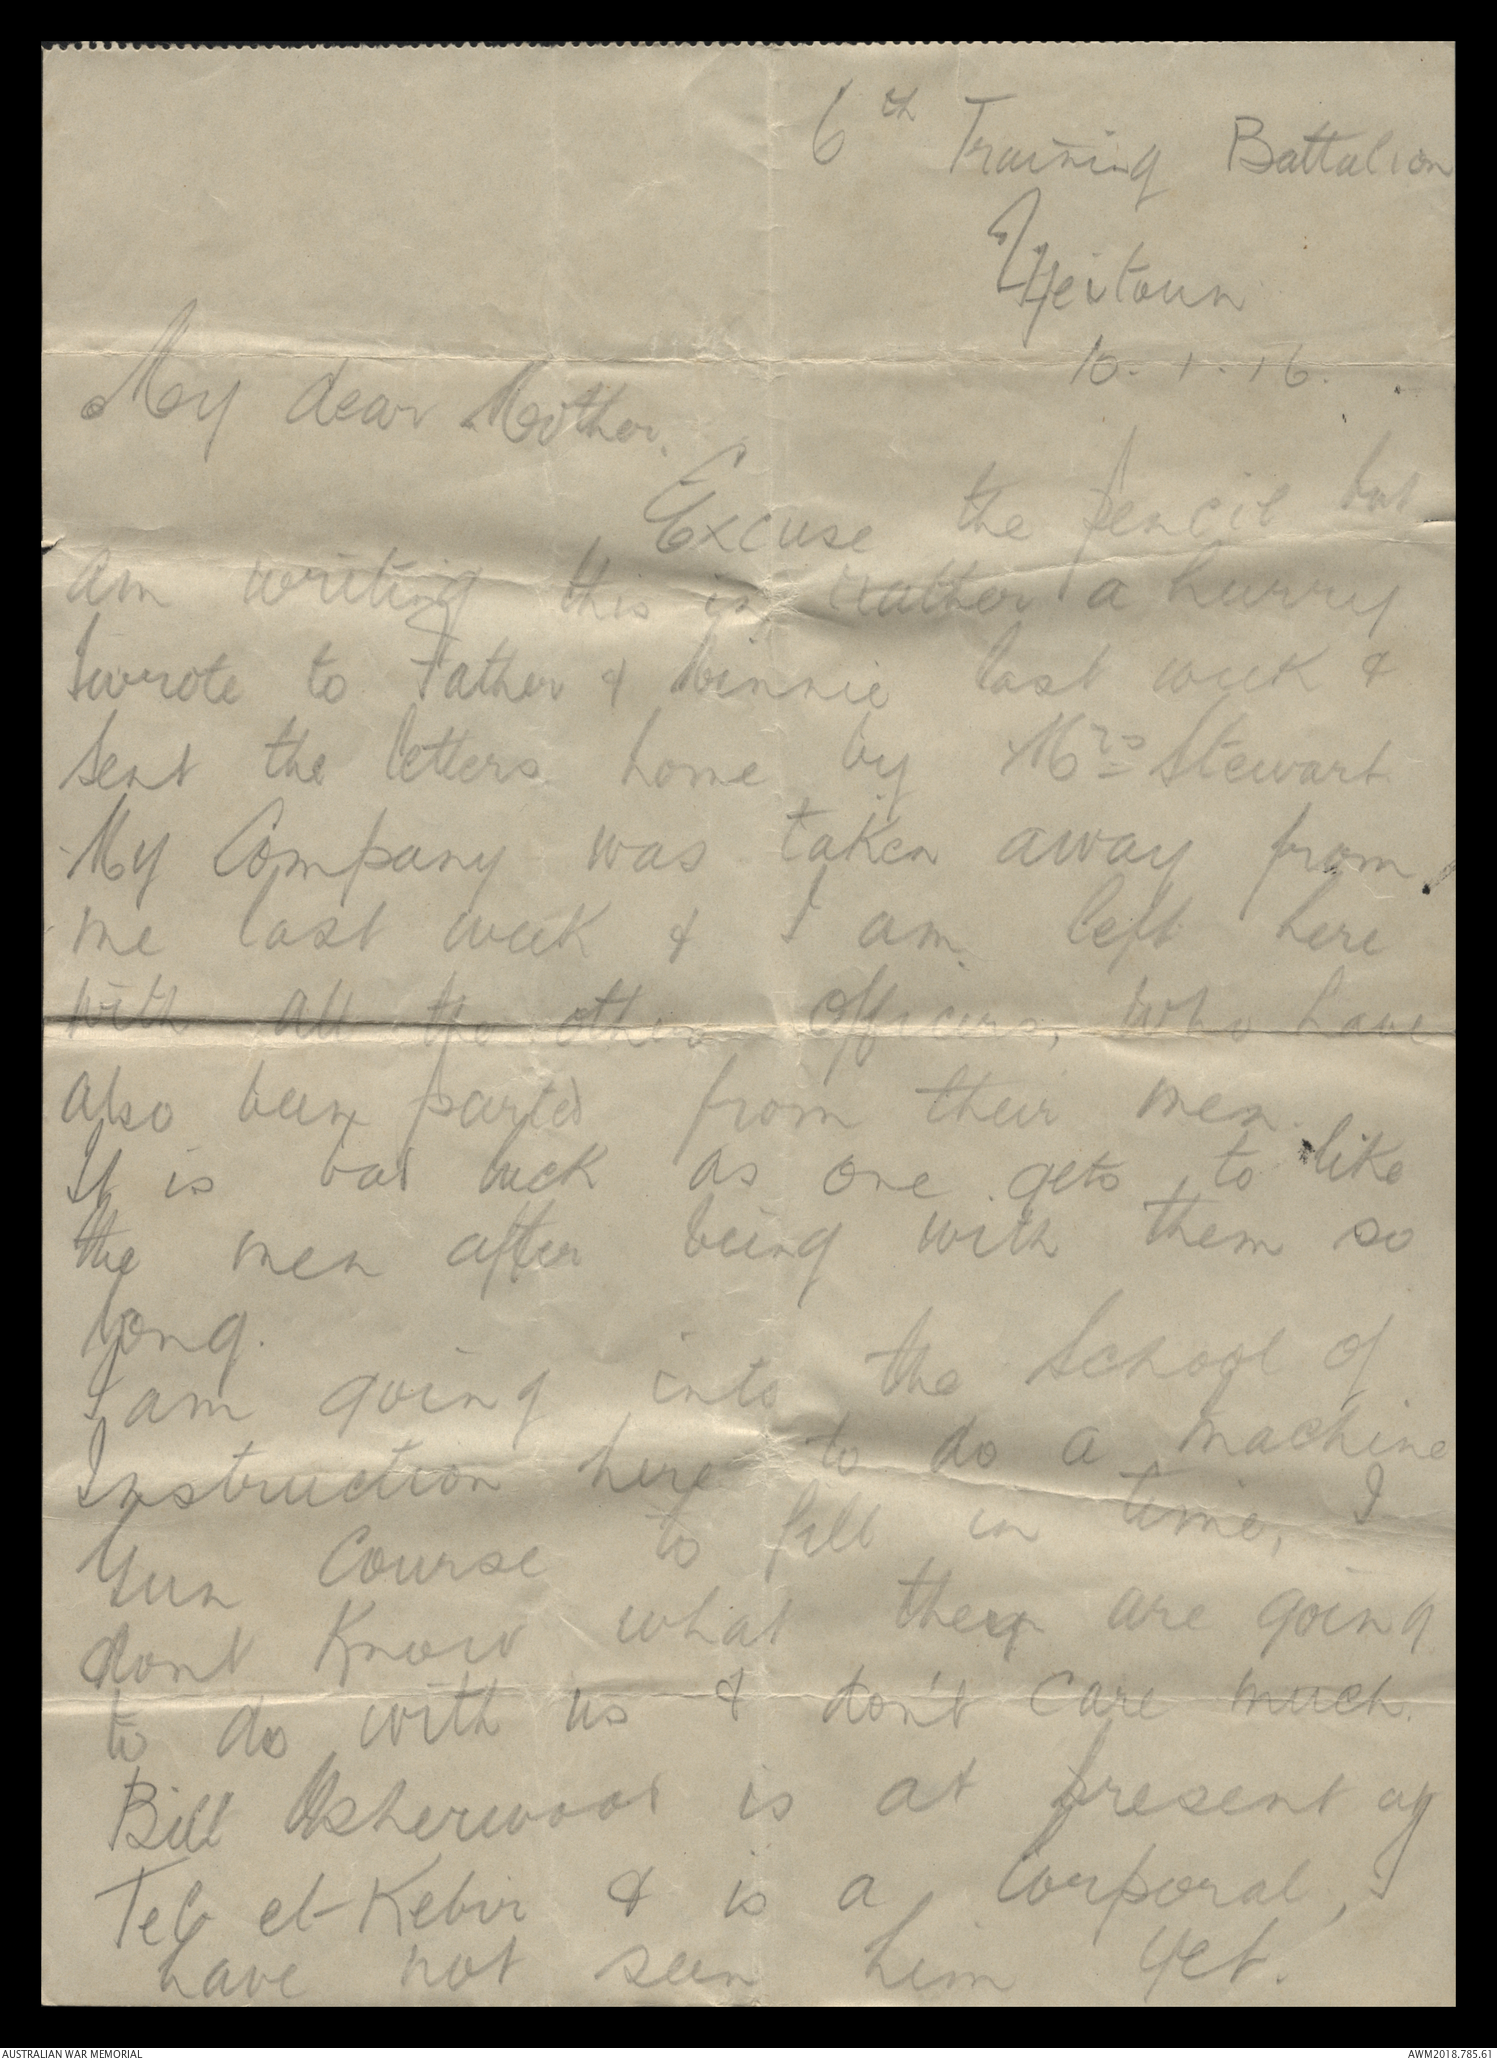 6th Training Battalion
Zeitoun
10. 1. 16.
My dear Mother.
Excuse the pencil but
am writing this in rather a hurry
I wrote to Father & Winnie last week &
sent the letters home by Mrs Stewart
My Company was taken away from
me last week & I am left here
with all the other officers, who have
also been parted from their men.
It is bad luck as one gets to like
the men after being with them so
long.
I am going into the School of
Instruction here to do a machine
Gun Course to fill in time, I
dont Know what they are going
to do with us & don't care much.
Bill Isherwood is at present at
Tel-el-Kebir & is a Corporal, I
have not seen him yet.
AUSTRALIAN WAR MEMORIAL
AWM2018.785.61